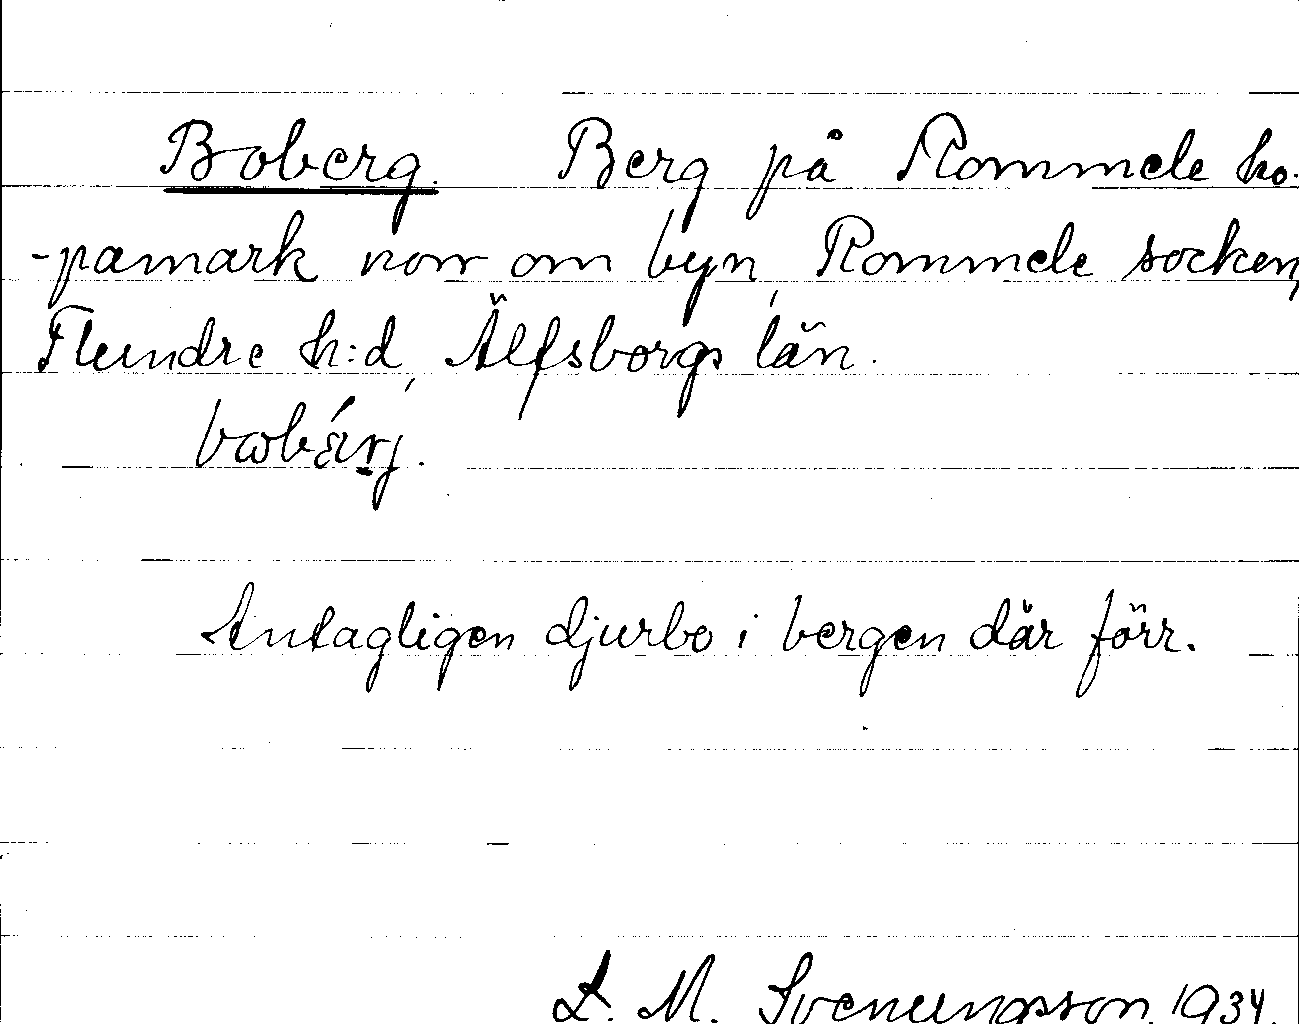 Boberg. Berg på Rommele ko-
-pamark norr om byn, Rommele socken,
Flundre h:d, Älfsborgs län.
Antagligen djurbo i bergen där förr.
L. M. Svenungsson. 1934.